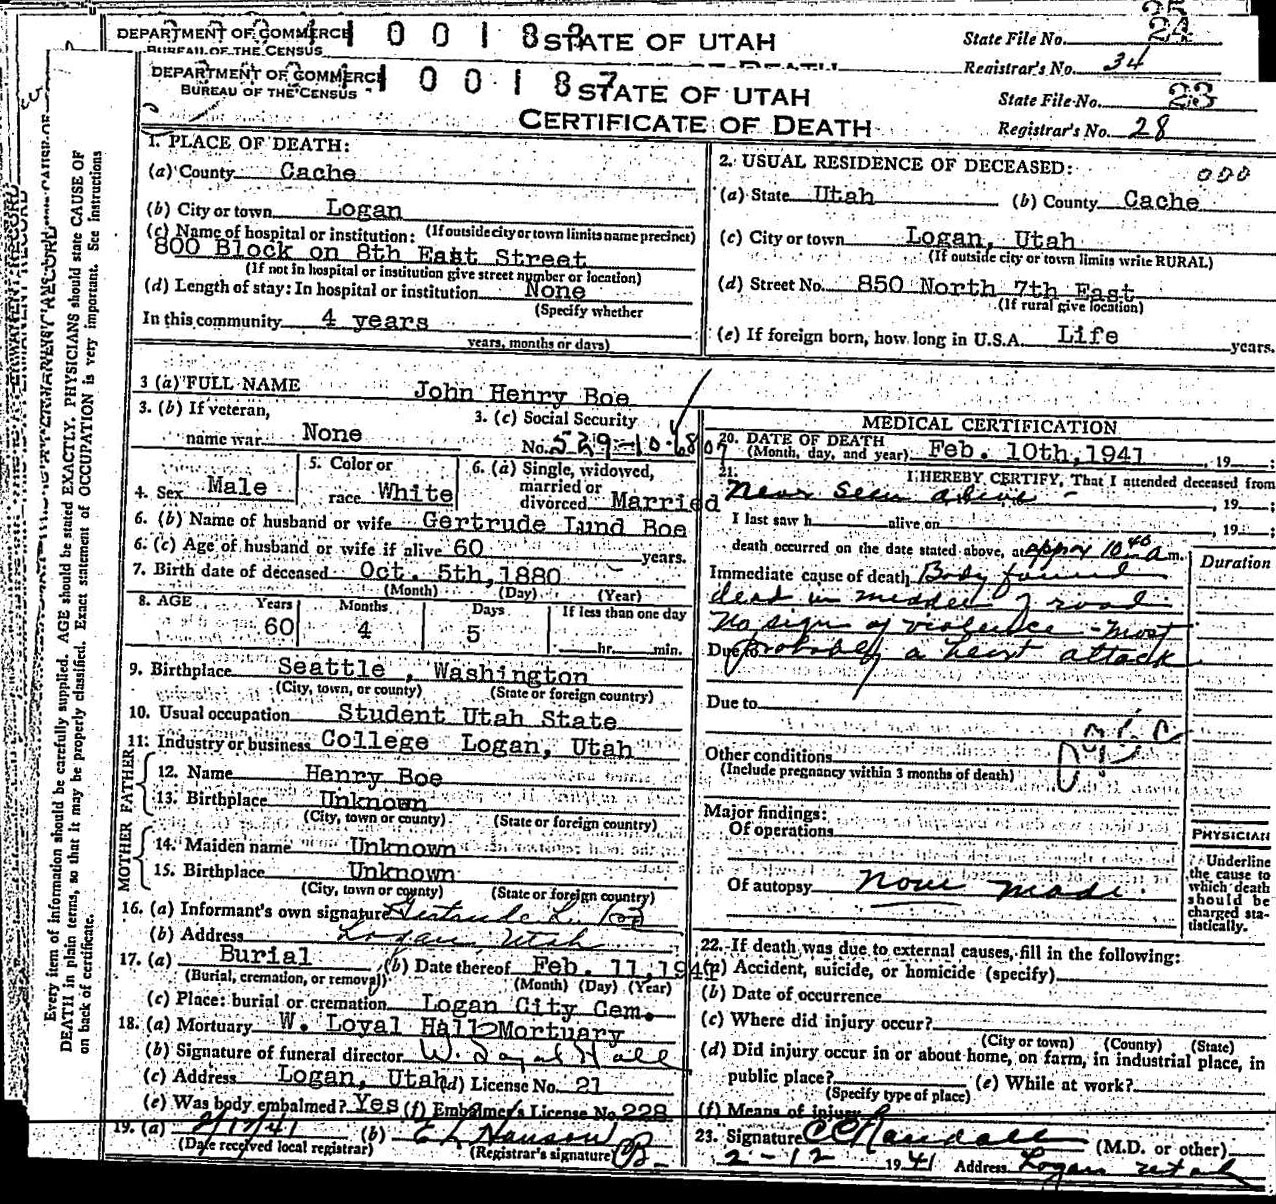 25
24
DEPARTMENT OF COMMERCE
BUREAU OF THE CENSUS
1 1 0 0 1 8 8
STATE OF UTAH
State File No.
Registrar's No. 34
DEPARTMENT OF COMMERCE
BUREAU OF THE CENSUS
1 1 0 0 1 8 7
STATE OF UTAH
CERTIFICATE OF DEATH
State File No. 23
Registrar's No. 28
Every item of information should be carefully supplied. AGE should be stated EXACTLY. PHYSICIANS should state CAUSE OF
DEATH in plain terms, so that it may be properly classified. Exact statement of OCCUPATION is very important. See instructions
on back of certificate.
1. PLACE OF DEATH:
(a) County Cache
(b) City or town Logan
(If outside city or town limits name precinct)
(c) Name of hospital or institution:
800 Block on 8th East Street
(If not in hospital or institution give street number or location)
(d) Length of stay: In hospital or institution None
(Specify whether
In this community 4 years
years, months or days)
2. USUAL RESIDENCE OF DECEASED:
000
(a) State Utah (b) County Cache
(c) City or town Logan, Utah
(If outside city or town limits write RURAL)
(d) Street No. 850 North 7th East
(If rural give location)
(e) If foreign born, how long in U.S.A. Life years.
3 (a) FULL NAME John Henry Boe
3. (b) If veteran,
name war None
3. (c) Social Security
No. 529-10-6807
4. Sex Male
5. Color or
race White
6. (a) Single, widowed,
married or
divorced Married
6. (b) Name of husband or wife Gertrude Lund Boe
6. (c) Age of husband or wife if alive 60 years.
7. Birth date of deceased Oct. 5th, 1880
(Month) (Day) (Year)
8. AGE Years Months Days If less than one day
60 4 5 hr. min.
9. Birthplace Seattle, Washington
(City, town, or county) (State or foreign country)
10. Usual occupation Student Utah State
11. Industry or business College Logan, Utah
FATHER
12. Name Henry Boe
13. Birthplace Unknown
(City, town or county) (State or foreign country)
MOTHER
14. Maiden name Unknown
15. Birthplace Unknown
(City, town or county) (State or foreign country)
16. (a) Informant's own signature Gertrude L. Boe
(b) Address Logan, Utah
17. (a) Burial (b) Date thereof Feb. 11, 1941
(Burial, cremation, or removal) (Month) (Day) (Year)
(c) Place: burial or cremation Logan City Cem.
18. (a) Mortuary W. Loyal Hall Mortuary
(b) Signature of funeral director W. Loyal Hall
(c) Address Logan, Utah (d) License No. 21
(e) Was body embalmed? Yes (f) Embalmer's License No. 228
19. (a) 2/12/41 (b) E L Hansen
(Date received local registrar) (Registrar's signature)
MEDICAL CERTIFICATION
20. DATE OF DEATH
(Month, day, and year) Feb. 10th, 1941, 19 ;
21. I HEREBY CERTIFY, That I attended deceased from
Never seen alive - , 19 ;
I last saw h alive on , 19 ;
death occurred on the date stated above, at appx 10 40 a m.
Duration
Immediate cause of death Body found
dead in middle of road
No sign of violence - most
Due to probably a heart attack
Due to
Other conditions
(Include pregnancy within 3 months of death)
Major findings:
Of operations
Of autopsy None made
PHYSICIAN
Underline
the cause to
which death
should be
charged sta-
tistically.
22. If death was due to external causes, fill in the following:
(a) Accident, suicide, or homicide (specify)
(b) Date of occurrence
(c) Where did injury occur?
(City or town) (County) (State)
(d) Did injury occur in or about home, on farm, in industrial place, in
public place? (e) While at work?
(Specify type of place)
(f) Means of injury
23. Signature C C Randall (M.D. or other)
2-12 1941 Address Logan Utah